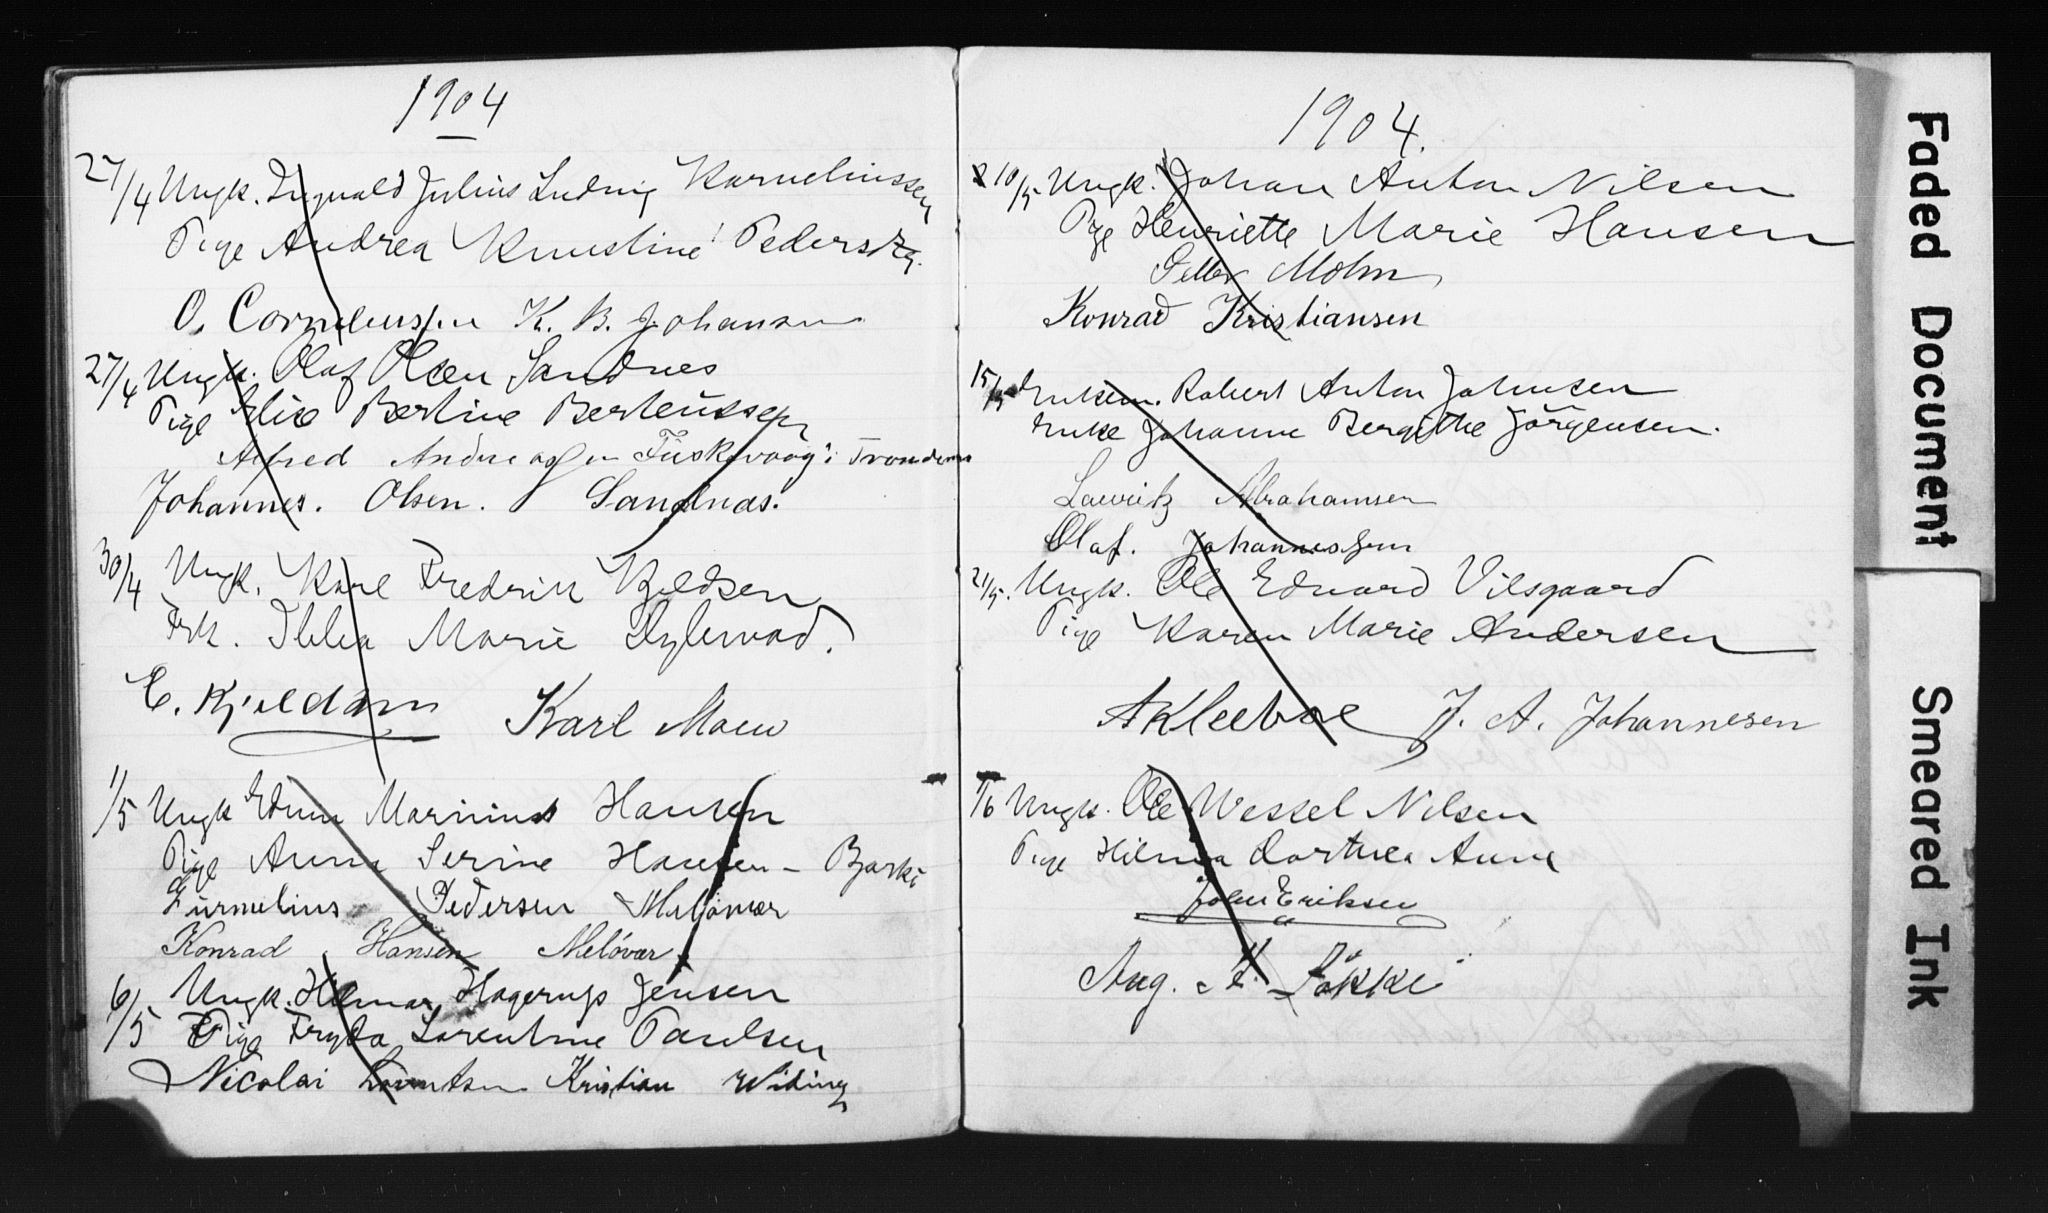 1904
27/4 Ungk. Ingvald Julius Ludvig Korneliussen
Pige Andrea Kristine Pedersen
O. Corneliussen K. B. Johansen
27/4 Ungk. Olaf Olsen Sandnes
Pige Elise Bertine Berteussen
Alfred Andreassen Fuskevaag i Trondenes
Johannes. Olsen. Sandnas.
30/4 Ungk. Karl Fredrik Kjeldsen
Frk. Thlea Marie
E. Kjeldsen Karl Moew
1/5 Ungk Edvin Marinius Hansen
Pige Anna Serine Hansen - Bjarkö
Kurnelius Pedersen Melöver
Konrad Hansen Melövar
6/5 Ungk. Hilmar Hagerup Jensen
Pige Fryda Lorentine Paulsen
Nicolai Lorentsen Kristian Widing
1904.
10/5 Ungk. Johan Anton Nilsen
Pige Henriette Marie Hansen
Petter Mohn
Konrad Kristiansen
15/5 Enkem. Robert Anton Johnsen
Enke Johanne Bergithe Jörgensen.
Lauritz Abrahamsen
Olaf. Johannessen
21/5. Ungk. Ole Edvard Vilsgaard
Pige Karen Marie Andersen
A Kleeboe J. A. Johannesen
1/6 Ungk. Ole Wessel Nilsen
Pige Hilma Dorthea Aune
Johan Eriksen
Aug. Løkke
Faded Document
Smeared Ink